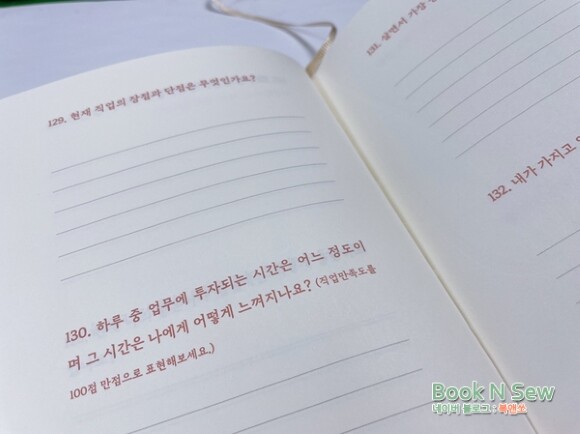 129. 현재 직업의 장점과 단점은 무엇인가요?
130. 하루 중 업무에 투자되는 시간은 어느 정도이
며 그 시간은 나에게 어떻게 느껴지나요? (직업만족도를
100점 만점으로 표현해보세요.)
131. 살면서 가장
132. 내가 가지고
Book N Sew
네이버 블로그 : 북앤쏘